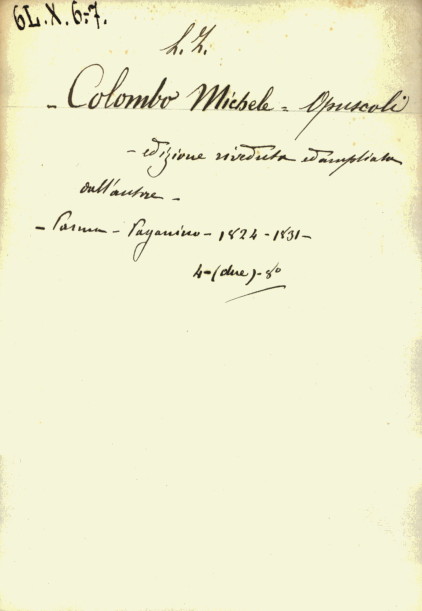 6L.X.6-7.
L.Z.
- Colombo Michele = Opuscoli
- edizione riveduta ed ampliata
dall'autore -
- Parma - Paganino - 1824 - 1831 -
4 - (due) - 8º